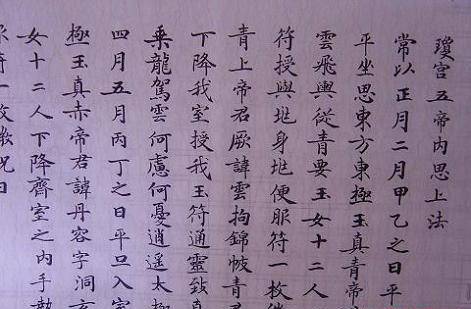 瓊宮五帝內思上法
常以正月二月甲乙之日平
平坐思東方東極玉真青帝
雲飛輿從青要玉女十二人
符授與兆身兆便服符一枚
青上帝君厥諱雲拘錦帔青
下降我室授我玉符通靈致
乘龍駕雲何慮何憂逍遙太
四月五月丙丁之日平旦入室
極玉真赤帝君諱丹容字洞
女十二人下降齊室之內手
符一枚微祝曰